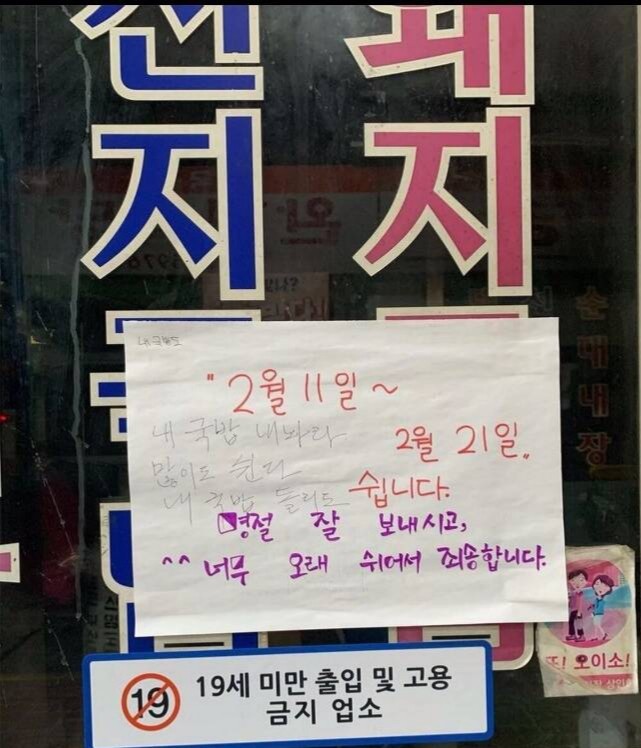 선지
돼지
순대내장
"2월 11일 ~
2월 21일"
쉽니다.
내 국밥 내놔라
많이도 쉰다
내 국밥 돌리도
명절 잘 보내시고,
^^ 너무 오래 쉬어서 죄송합니다.
또! 오이소!
19
19세 미만 출입 및 고용
금지 업소